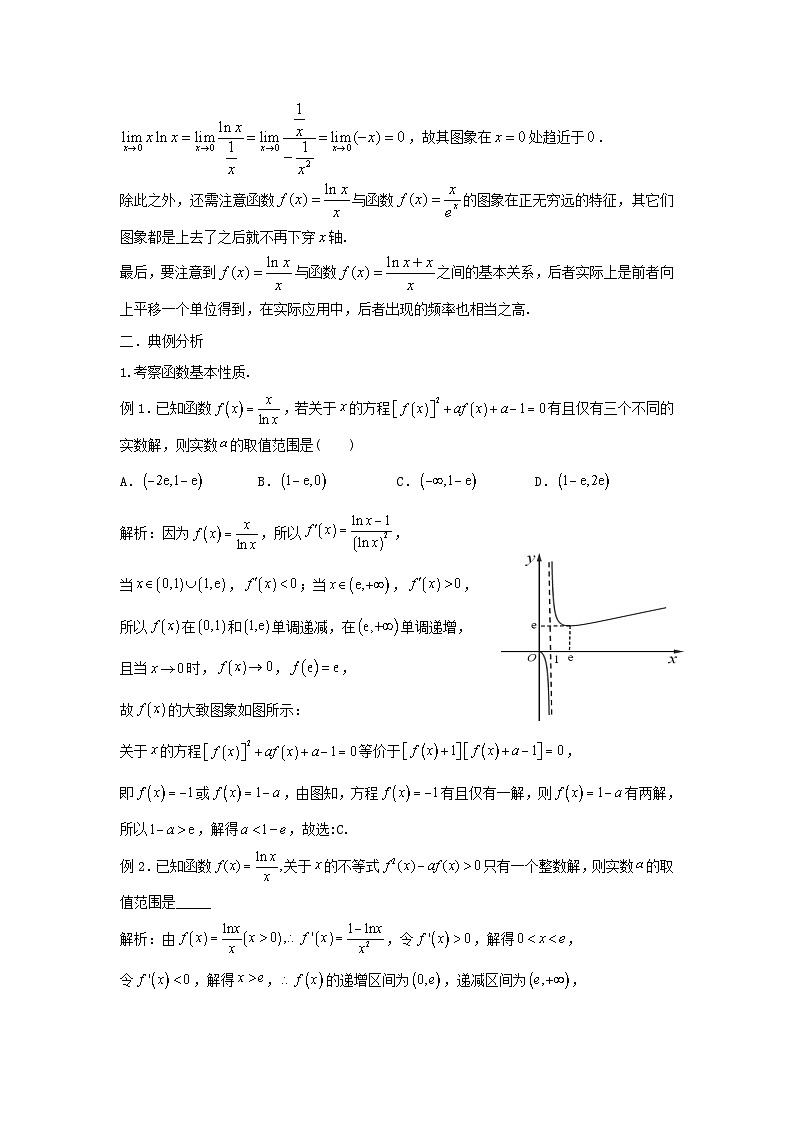 $\lim\limits_{x\to 0} x\ln x=\lim\limits_{x\to 0}\dfrac{\ln x}{\dfrac{1}{x}}=\lim\limits_{x\to 0}\dfrac{\dfrac{1}{x}}{-\dfrac{1}{x^2}}=\lim\limits_{x\to 0}(-x)=0$，故其图象在 $x=0$ 处趋近于 $0$．
除此之外，还需注意函数 $f(x)=\dfrac{\ln x}{x}$ 与函数 $f(x)=\dfrac{x}{e^x}$ 的图象在正无穷远的特征，其它们
图象都是上去了之后就不再下穿 $x$ 轴.
最后，要注意到 $f(x)=\dfrac{\ln x}{x}$ 与函数 $f(x)=\dfrac{\ln x+x}{x}$ 之间的基本关系，后者实际上是前者向
上平移一个单位得到，在实际应用中，后者出现的频率也相当之高.
二．典例分析
1.考察函数基本性质.
例1.已知函数 $f(x)=\dfrac{x}{\ln x}$，若关于 $x$ 的方程 $[f(x)]^2+af(x)+a-1=0$ 有且仅有三个不同的
实数解，则实数 $a$ 的取值范围是(　　)
A. $(-2e,1-e)$ B. $(1-e,0)$ C. $(-\infty,1-e)$ D. $(1-e,2e)$
解析：因为 $f(x)=\dfrac{x}{\ln x}$，所以 $f'(x)=\dfrac{\ln x-1}{(\ln x)^2}$，
当 $x\in(0,1)\cup(1,e)$，$f'(x)<0$；当 $x\in(e,+\infty)$，$f'(x)>0$，
所以 $f(x)$ 在 $(0,1)$ 和 $(1,e)$ 单调递减，在 $(e,+\infty)$ 单调递增，
且当 $x\to 0$ 时，$f(x)\to 0$，$f(e)=e$，
故 $f(x)$ 的大致图象如图所示：
y
e
O 1 e x
关于 $x$ 的方程 $[f(x)]^2+af(x)+a-1=0$ 等价于 $[f(x)+1][f(x)+a-1]=0$，
即 $f(x)=-1$ 或 $f(x)=1-a$，由图知，方程 $f(x)=-1$ 有且仅有一解，则 $f(x)=1-a$ 有两解，
所以 $1-a>e$，解得 $a<1-e$，故选:C.
例2.已知函数 $f(x)=\dfrac{\ln x}{x}$,关于 $x$ 的不等式 $f^2(x)-af(x)>0$ 只有一个整数解，则实数 $a$ 的取
值范围是_____
解析：由 $f(x)=\dfrac{\ln x}{x}(x>0)$,∴ $f'(x)=\dfrac{1-\ln x}{x^2}$，令 $f'(x)>0$，解得 $0<x<e$，
令 $f'(x)<0$，解得 $x>e$，∴ $f(x)$ 的递增区间为 $(0,e)$，递减区间为 $(e,+\infty)$，